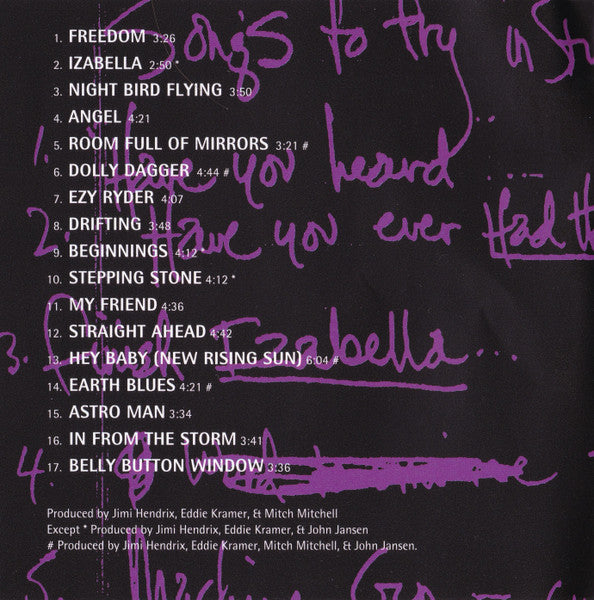 1. FREEDOM 3:26
2. IZABELLA 2:50 *
3. NIGHT BIRD FLYING 3:50
4. ANGEL 4:21
5. ROOM FULL OF MIRRORS 3:21 #
6. DOLLY DAGGER 4:44 #
7. EZY RYDER 4:07
8. DRIFTING 3:48
9. BEGINNINGS 4:12 *
10. STEPPING STONE 4:12 *
11. MY FRIEND 4:36
12. STRAIGHT AHEAD 4:42
13. HEY BABY (NEW RISING SUN) 6:04 #
14. EARTH BLUES 4:21 #
15. ASTRO MAN 3:34
16. IN FROM THE STORM 3:41
17. BELLY BUTTON WINDOW 3:36
Produced by Jimi Hendrix, Eddie Kramer, & Mitch Mitchell
Except * Produced by Jimi Hendrix, Eddie Kramer, & John Jansen
# Produced by Jimi Hendrix, Eddie Kramer, Mitch Mitchell, & John Jansen.
Songs to try in
1. Have you heard ...
2. Have you ever Had
3. Finish Izabella ...
4.
5. Machine